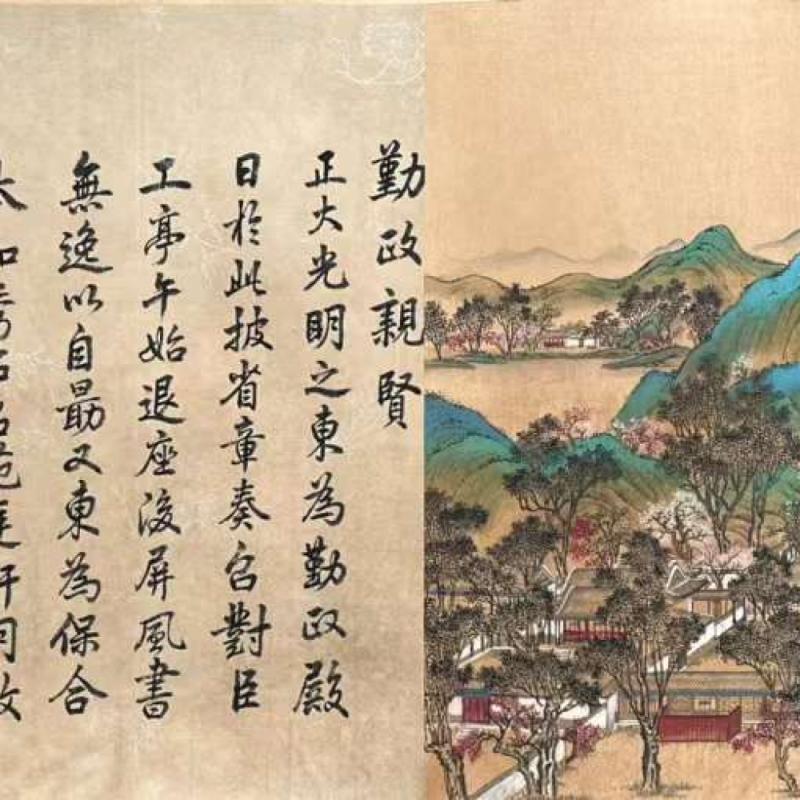 勤政親賢
正大光明之東為勤政殿
日於此披省章奏召對臣
工亭午始退座後屏風書
無逸以自勗又東為保合